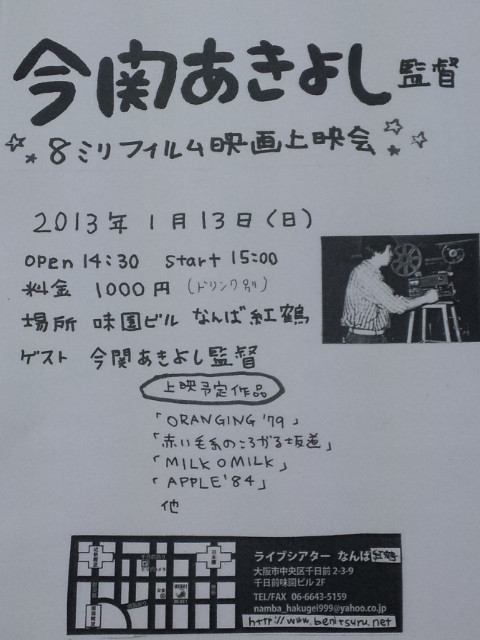 今関あきよし監督
8ミリフィルム映画上映会
2013年1月13日(日)
open 14:30 start 15:00
料金 1000円(ドリンク別)
場所 味園ビル なんば紅鶴
ゲスト 今関あきよし監督
上映予定作品
「ORANGING'79」
「赤い毛糸のころがる坂道」
「MILK O MILK」
「APPLE'84」
他
ライブシアター なんば紅鶴
大阪市中央区千日前2-3-9
千日前味園ビル 2F
TEL/FAX 06-6643-5159
namba_hakugei999@yahoo.co.jp
http://www.benitsuru.net